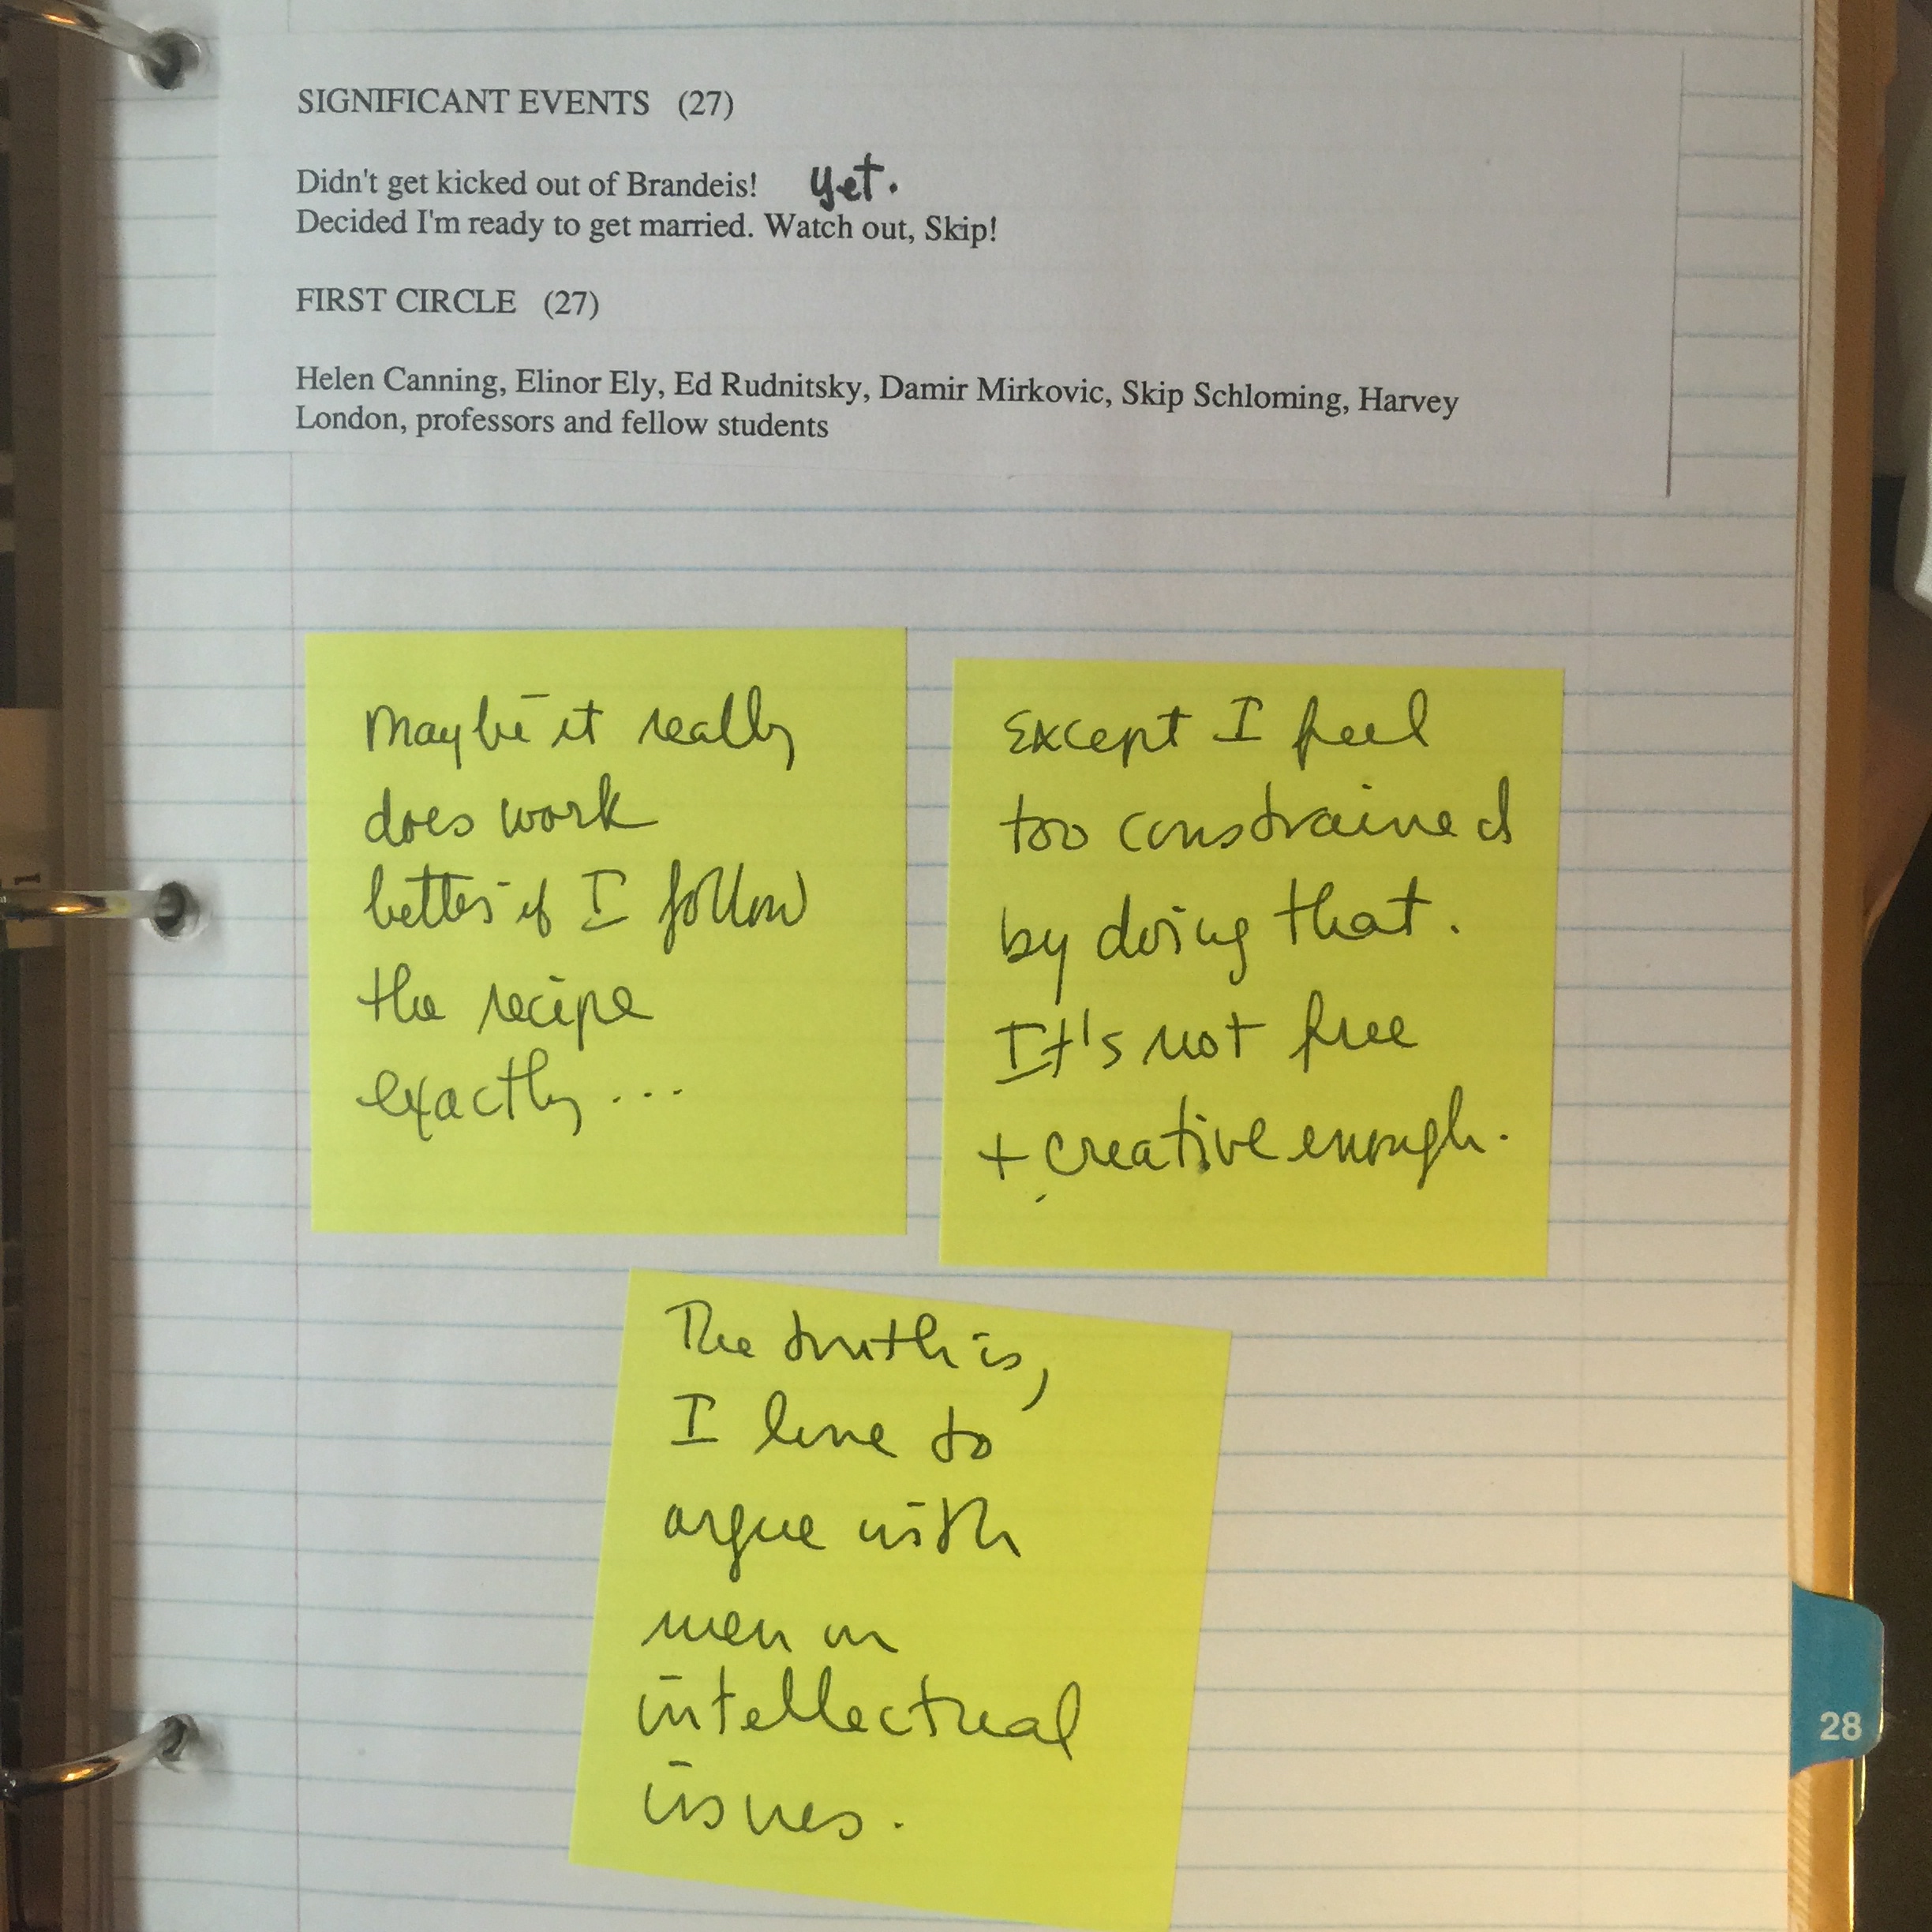 SIGNIFICANT EVENTS (27)
Didn't get kicked out of Brandeis! yet.
Decided I'm ready to get married. Watch out, Skip!
FIRST CIRCLE (27)
Helen Canning, Elinor Ely, Ed Rudnitsky, Damir Mirkovic, Skip Schloming, Harvey
London, professors and fellow students
Maybe it really
does work
better if I follow
the recipe
exactly...
Except I feel
too constrained
by doing that.
It's not free
+ creative enough.
The truth is,
I love to
argue with
men on
intellectual
issues.
28